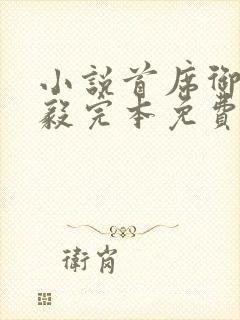 小說首席御
毅完本免費
衛肖